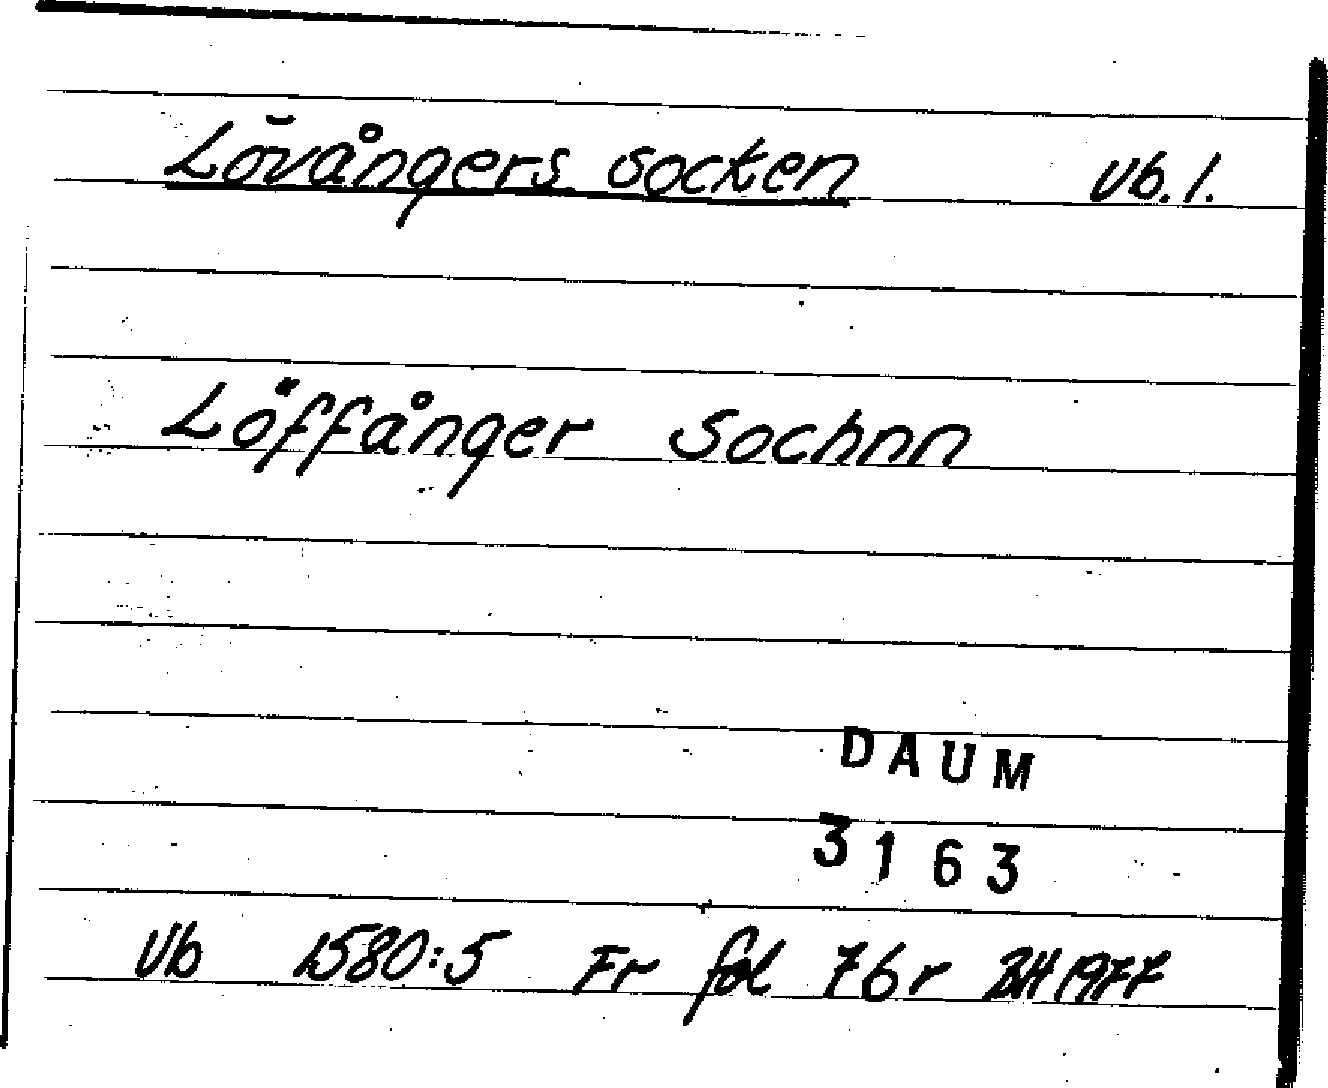 Lövångers socken Vb. l.
Löffånger Sochnn
DAUM
3163
Vb 1580:5 Fr fol 76r BH 1977